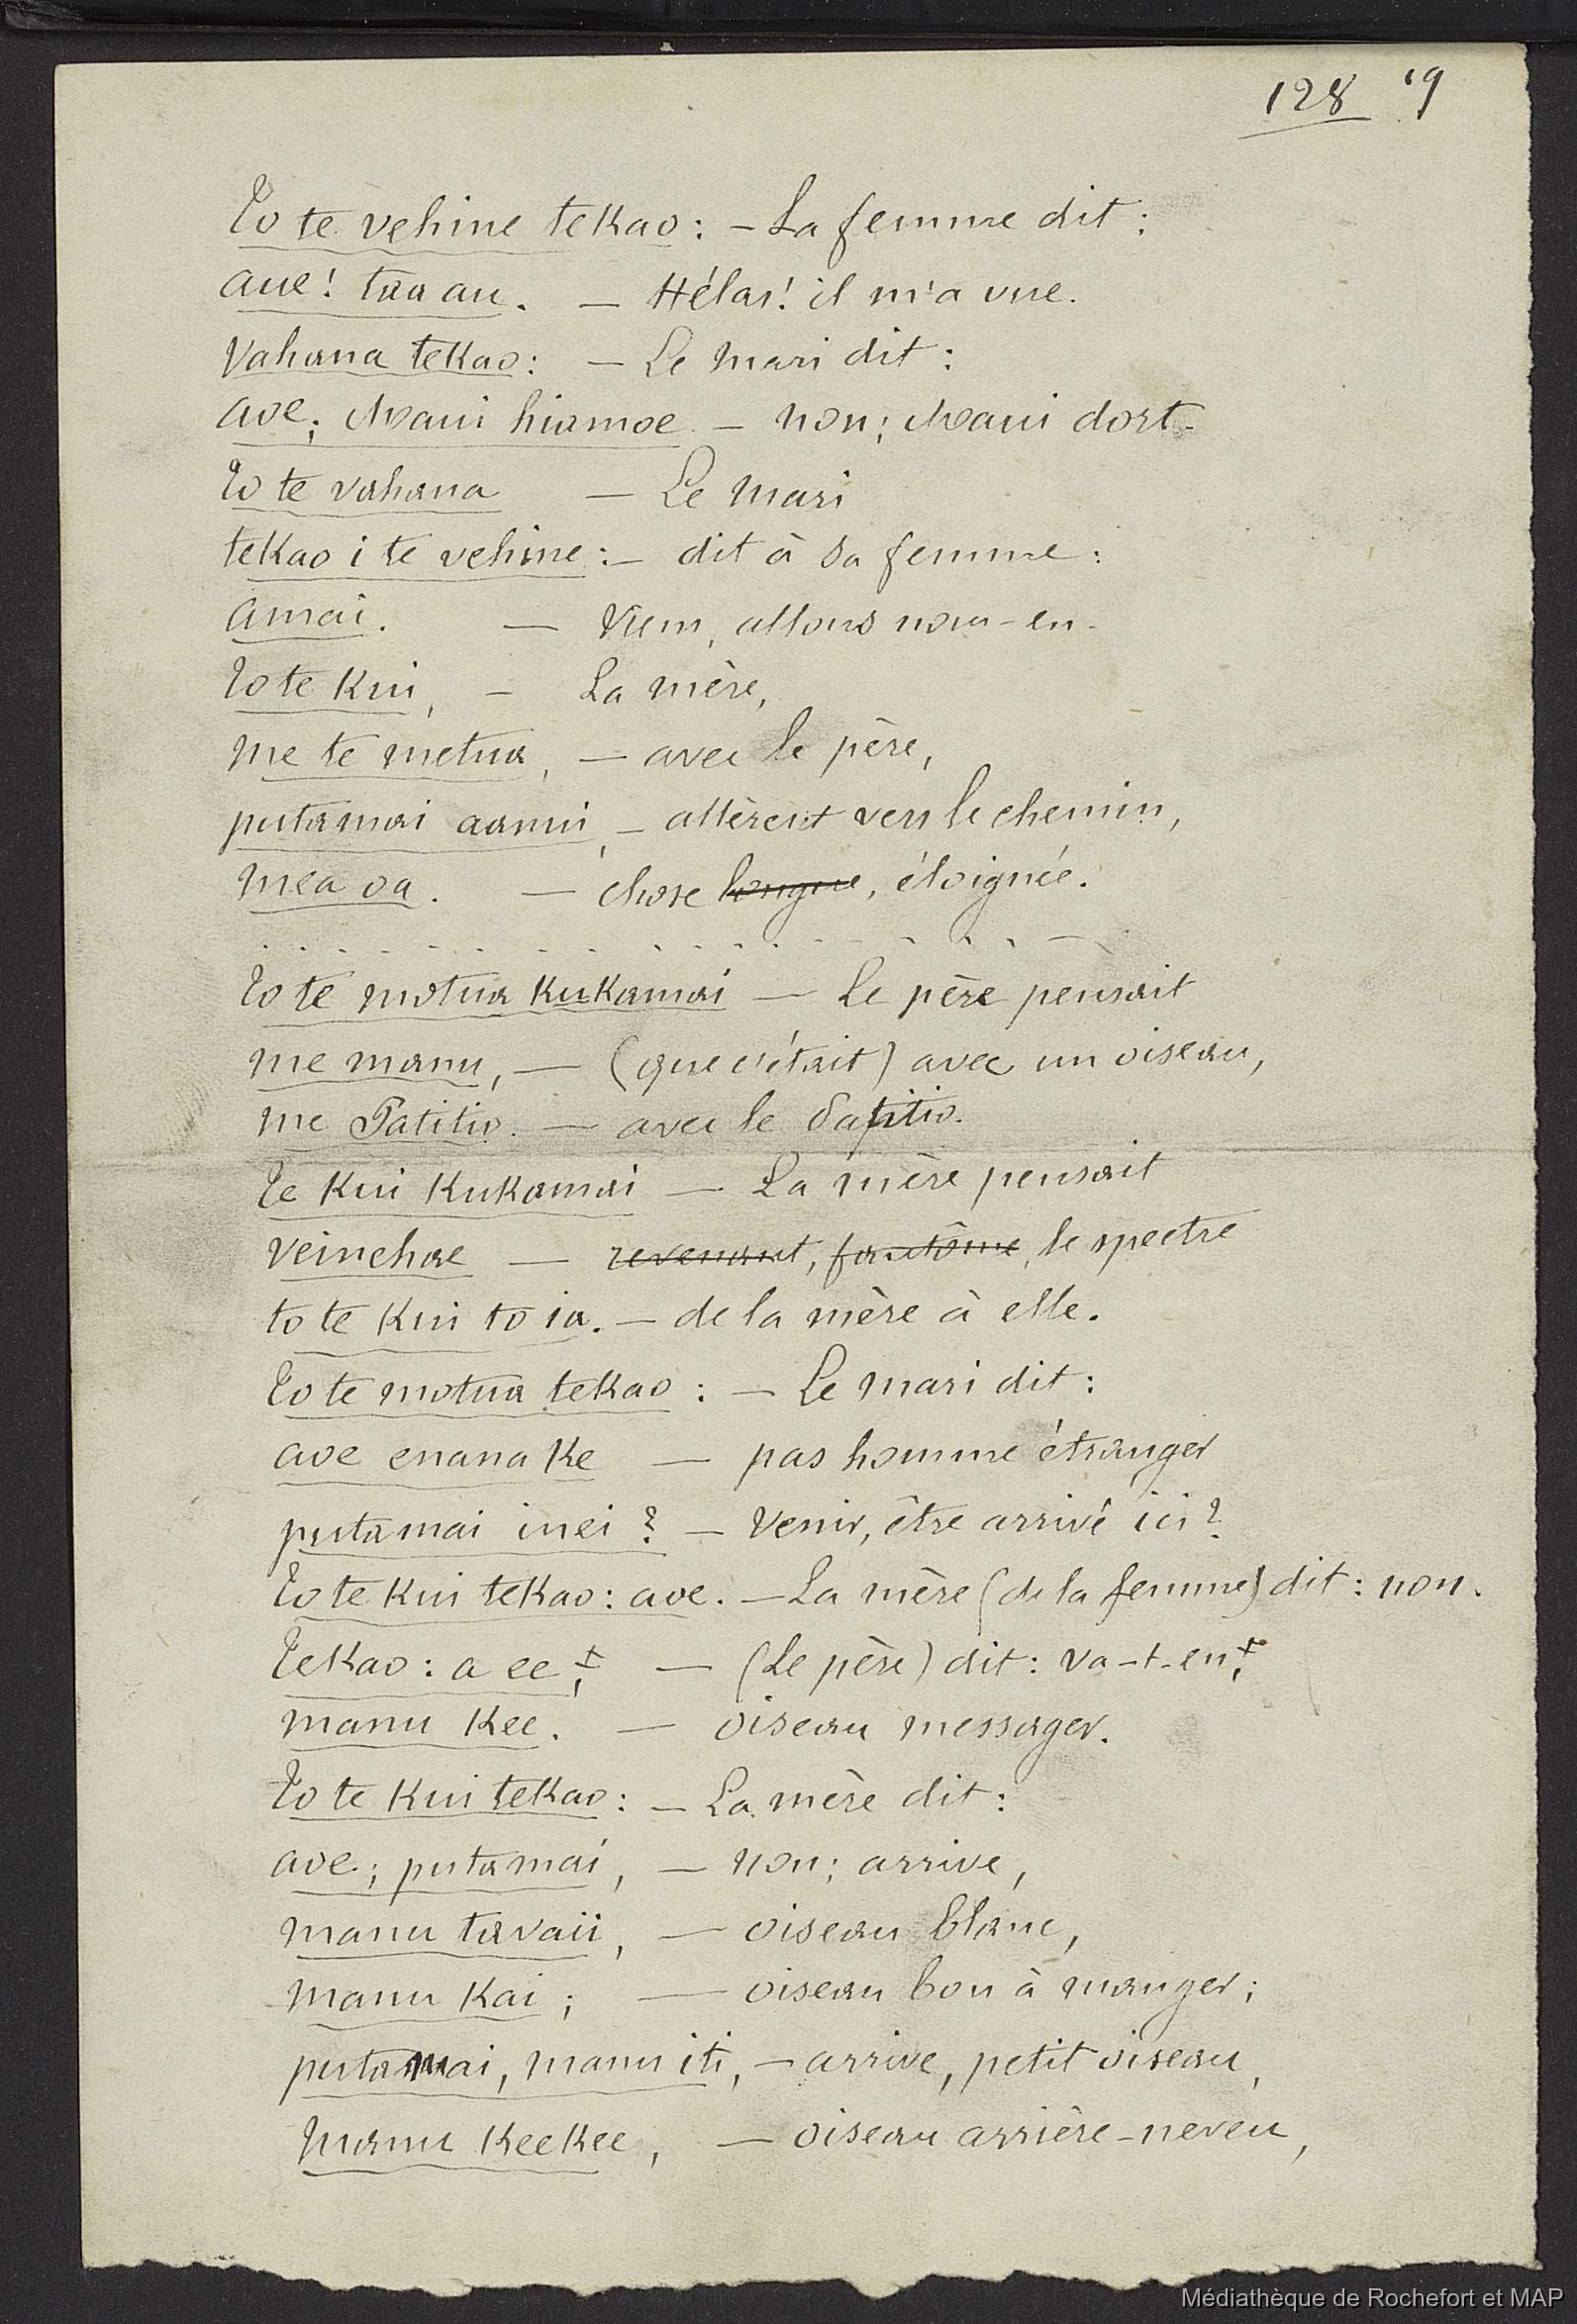 128 19
To te vehine tekao: – La femme dit:
aue! taa au. – Hélas! il m'a vue.
Vahana tekao: – Le mari dit:
aoe; Maui hiamoe – non; Maui dort.
To te vahana – Le mari
tekao i te vehine: – dit à sa femme:
amai. – Viens, allons nous-en.
To te kui, – La mère,
me te metua, – avec le père,
putamai aanui, – allèrent vers le chemin,
mea oa. – chose longue, éloignée.
To te motua kukamai – Le père pensait
me manu, – (que c'était) avec un oiseau,
me Patitio. – avec le Patitio.
Te kui kukamai – La mère pensait
veinehae – revenant, fantôme, le spectre
to te kui to ia. – de la mère à elle.
To te motua tekao: – Le mari dit:
aoe enana ke – pas homme étranger
putamai inei? – Venir, être arrivé ici?
To te kui tekao: aoe. – La mère (de la femme) dit: non.
Tekao: a ee +, – (Le père) dit: va-t-en +,
manu kee. – oiseau messager.
To te kui tekao: – La mère dit:
aoe; putamai, – non; arrive,
manu tavaii, – oiseau blanc,
manu kai; – oiseau bon à manger;
putamai, manu iti, – arrive, petit oiseau,
manu keekee, – oiseau arrière-neveu,
Médiathèque de Rochefort et MAP